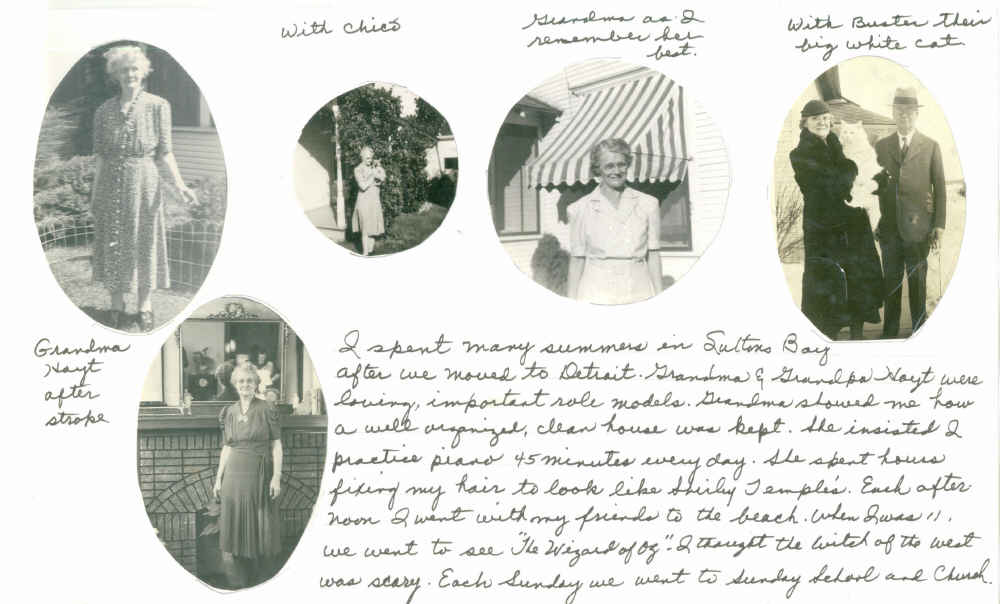 With Chico
Grandma as I
remember her
best.
With Buster their
big white cat.
Grandma
Hoyt
after
stroke
I spent many summers in Suttons Bay
after we moved to Detroit. Grandma & Grandpa Hoyt were
loving, important role models. Grandma showed me how
a well organized, clean house was kept. She insisted I
practice piano 45 minutes every day. She spent hours
fixing my hair to look like Shirly Temple's. Each after
noon I went with my friends to the beach. When I was 11,
we went to see "The Wizard of Oz". I thought the Witch of the West
was scary. Each Sunday we went to Sunday School and Church.